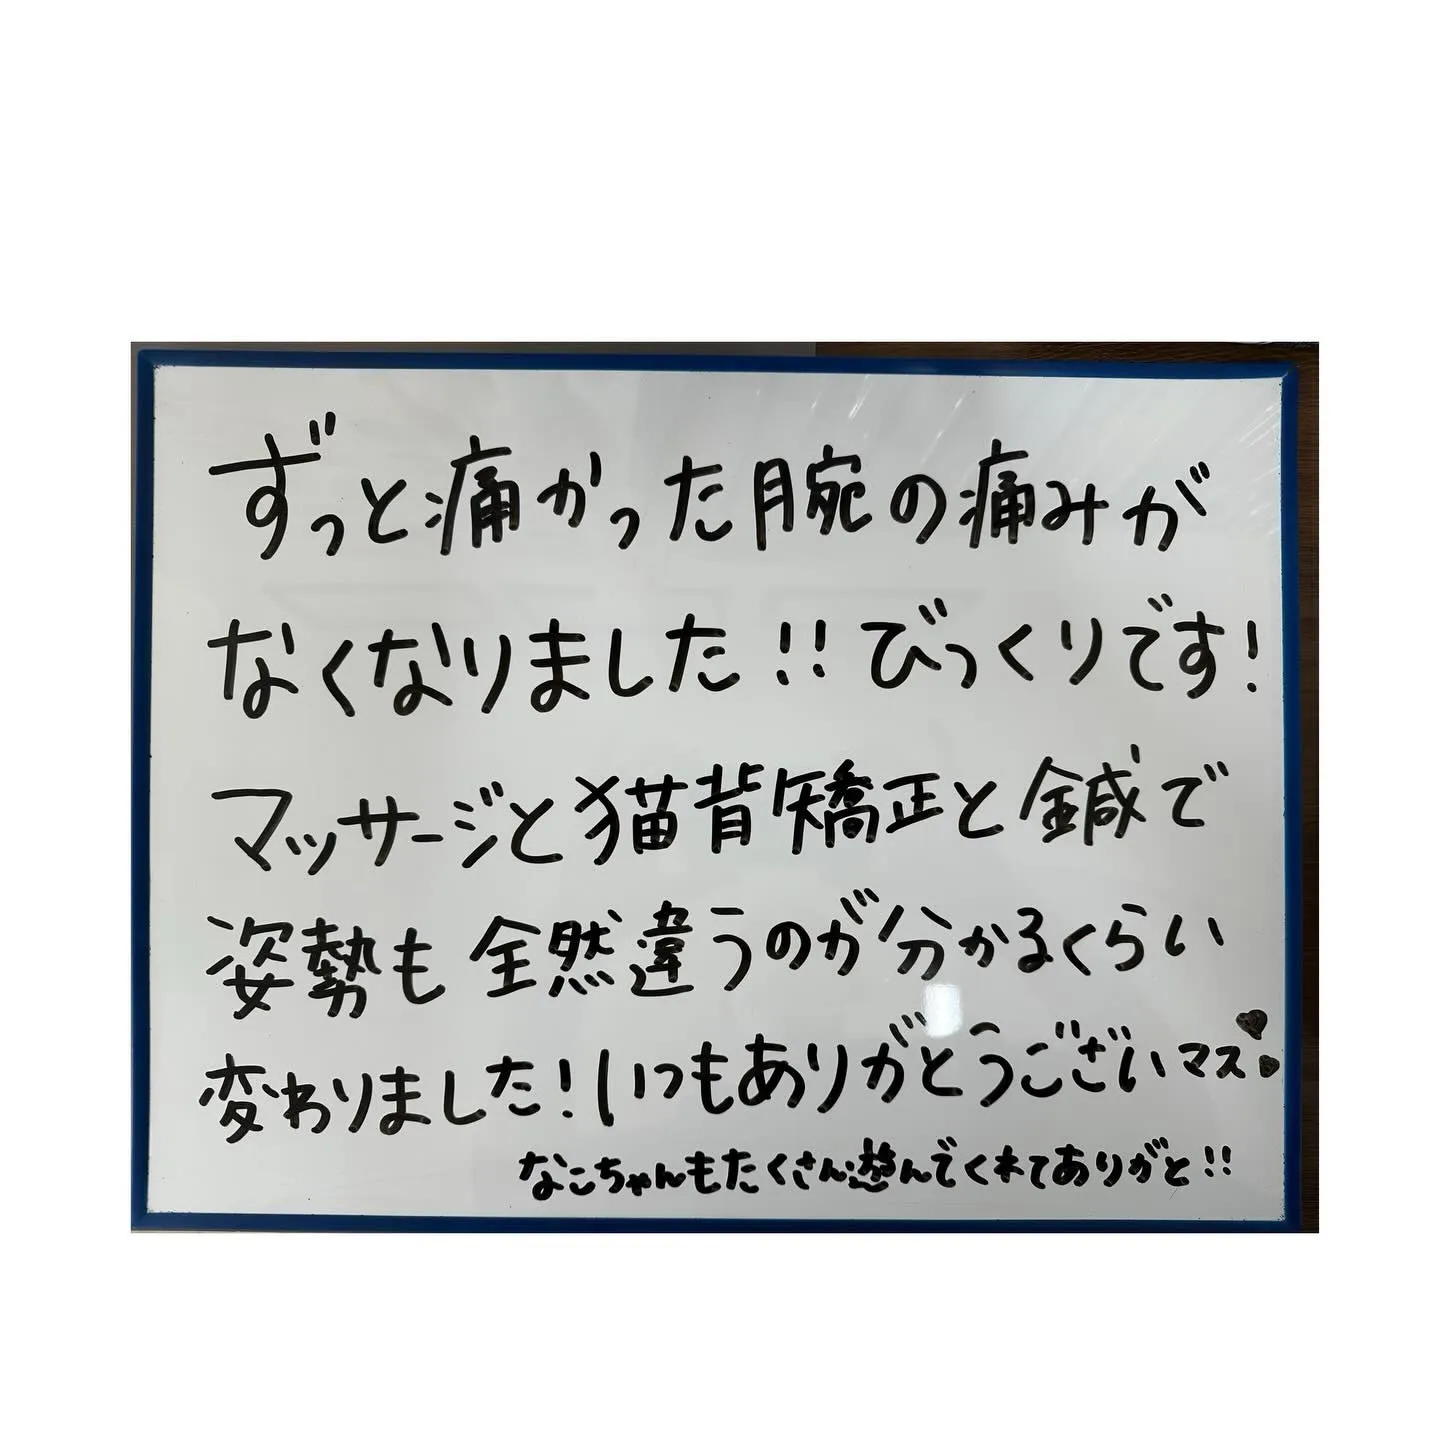 ずっと痛かった腕の痛みが
なくなりました!!びっくりです!
マッサージと猫背矯正と鍼で
姿勢も全然違うのが分かるくらい
変わりました!いつもありがとうございマス
なこちゃんもたくさん遊んでくれてありがと!!